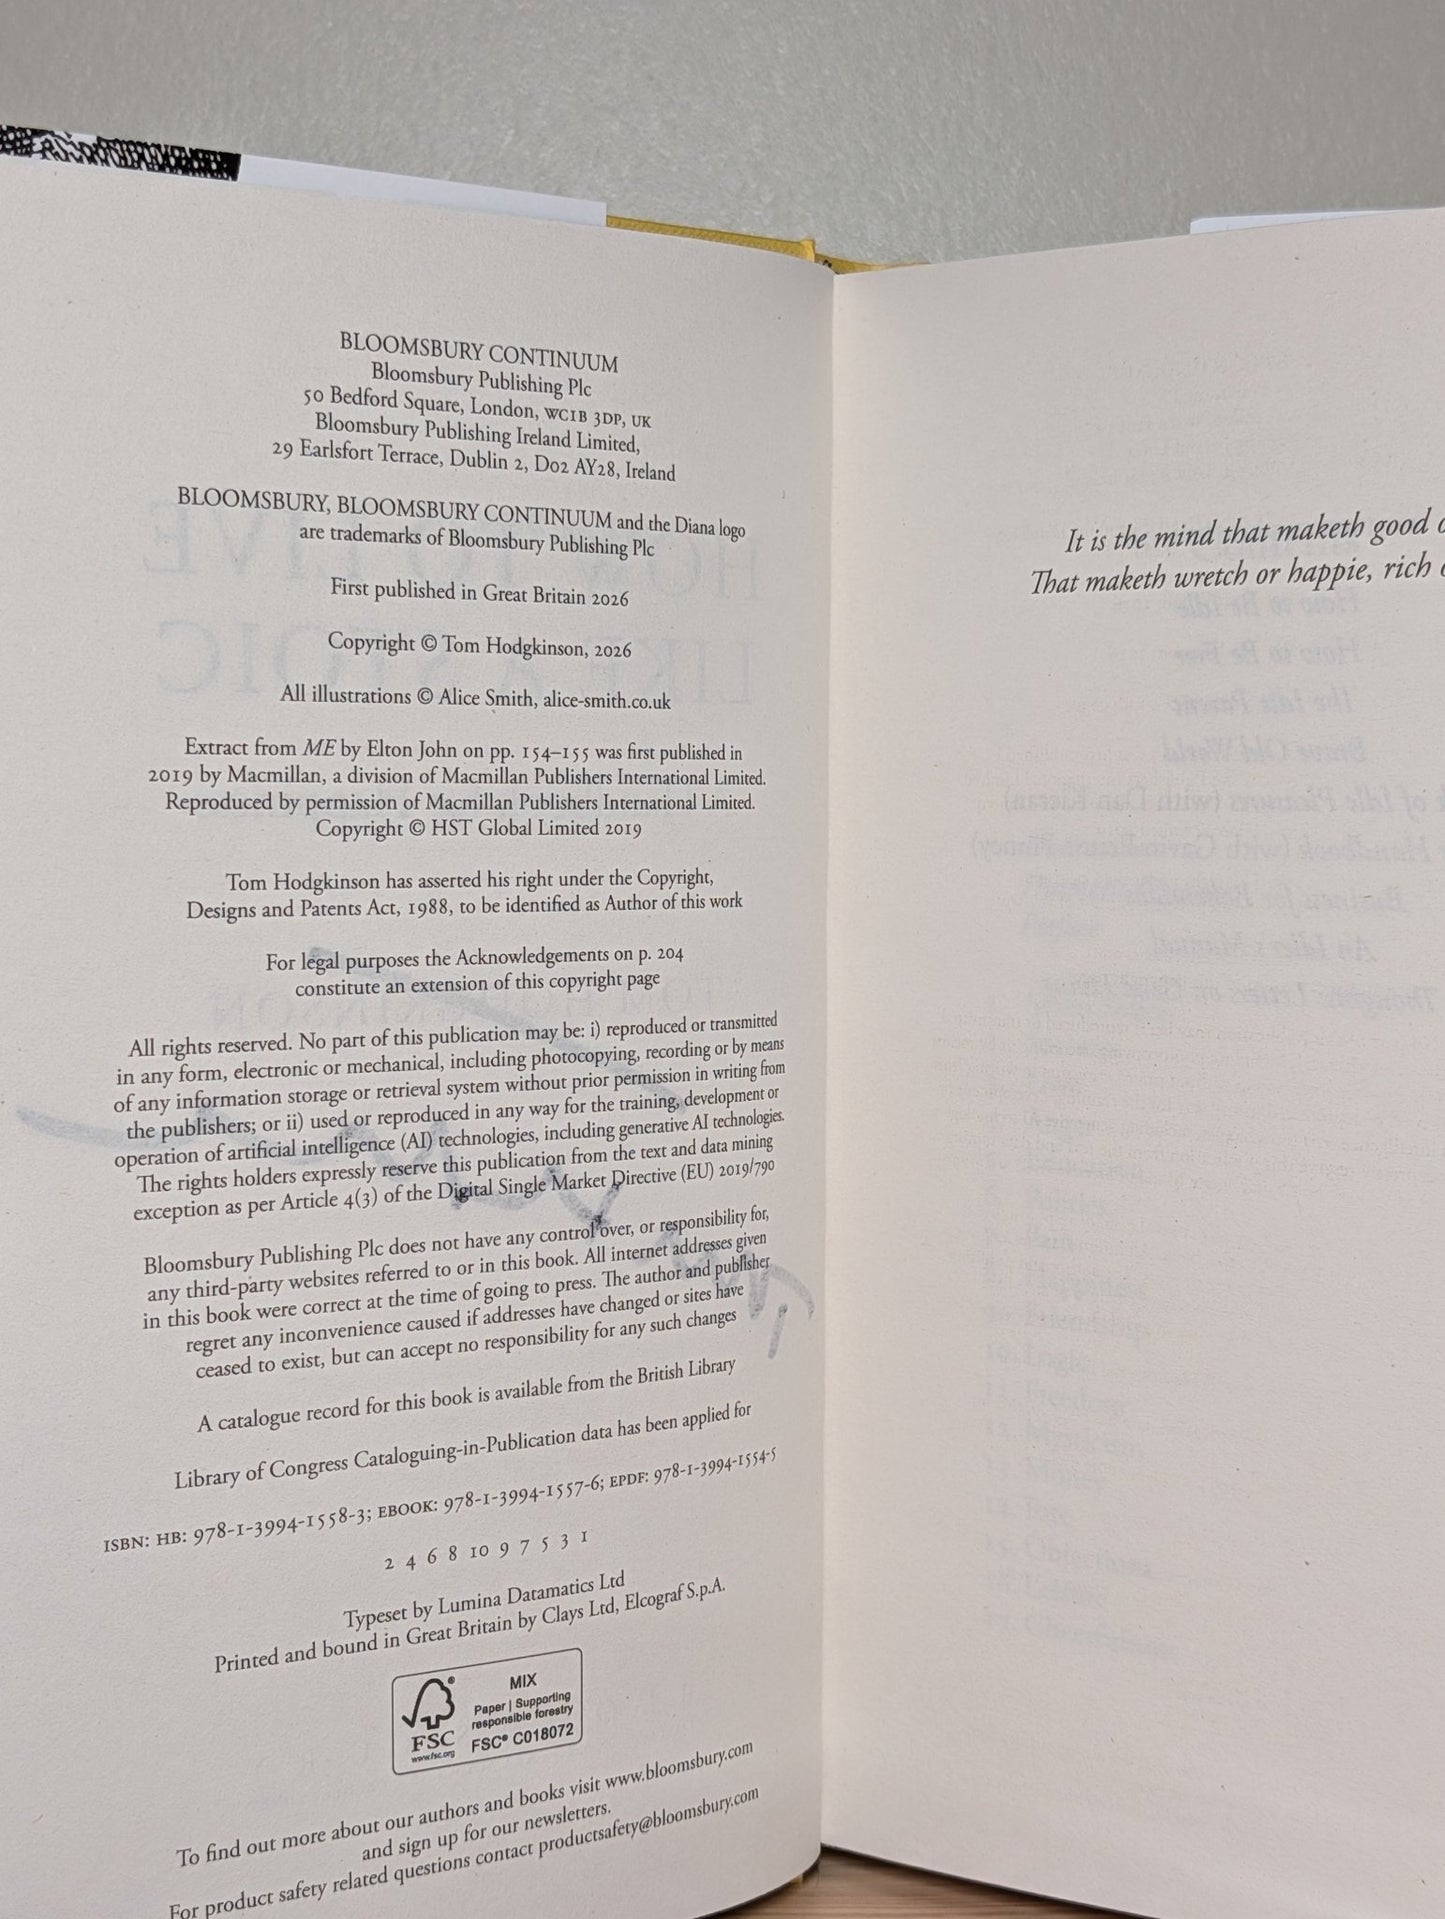 BLOOMSBURY CONTINUUM
Bloomsbury Publishing Plc
50 Bedford Square, London, WC1B 3DP, UK
Bloomsbury Publishing Ireland Limited,
29 Earlsfort Terrace, Dublin 2, D02 AY28, Ireland
BLOOMSBURY, BLOOMSBURY CONTINUUM and the Diana logo
are trademarks of Bloomsbury Publishing Plc
First published in Great Britain 2026
Copyright © Tom Hodgkinson, 2026
All illustrations © Alice Smith, alice-smith.co.uk
Extract from ME by Elton John on pp. 154–155 was first published in
2019 by Macmillan, a division of Macmillan Publishers International Limited.
Reproduced by permission of Macmillan Publishers International Limited.
Copyright © HST Global Limited 2019
Tom Hodgkinson has asserted his right under the Copyright,
Designs and Patents Act, 1988, to be identified as Author of this work
For legal purposes the Acknowledgements on p. 204
constitute an extension of this copyright page
All rights reserved. No part of this publication may be: i) reproduced or transmitted
in any form, electronic or mechanical, including photocopying, recording or by means
of any information storage or retrieval system without prior permission in writing from
the publishers; or ii) used or reproduced in any way for the training, development or
operation of artificial intelligence (AI) technologies, including generative AI technologies.
The rights holders expressly reserve this publication from the text and data mining
exception as per Article 4(3) of the Digital Single Market Directive (EU) 2019/790
Bloomsbury Publishing Plc does not have any control over, or responsibility for,
any third-party websites referred to or in this book. All internet addresses given
in this book were correct at the time of going to press. The author and publisher
regret any inconvenience caused if addresses have changed or sites have
ceased to exist, but can accept no responsibility for any such changes
A catalogue record for this book is available from the British Library
Library of Congress Cataloguing-in-Publication data has been applied for
ISBN: HB: 978-1-3994-1558-3; EBOOK: 978-1-3994-1557-6; EPDF: 978-1-3994-1554-5
2 4 6 8 10 9 7 5 3 1
Typeset by Lumina Datamatics Ltd
Printed and bound in Great Britain by Clays Ltd, Elcograf S.p.A.
FSC
www.fsc.org
MIX
Paper | Supporting
responsible forestry
FSC® C018072
To find out more about our authors and books visit www.bloomsbury.com
and sign up for our newsletters.
For product safety related questions contact productsafety@bloomsbury.com
It is the mind that maketh good
That maketh wretch or happie, rich